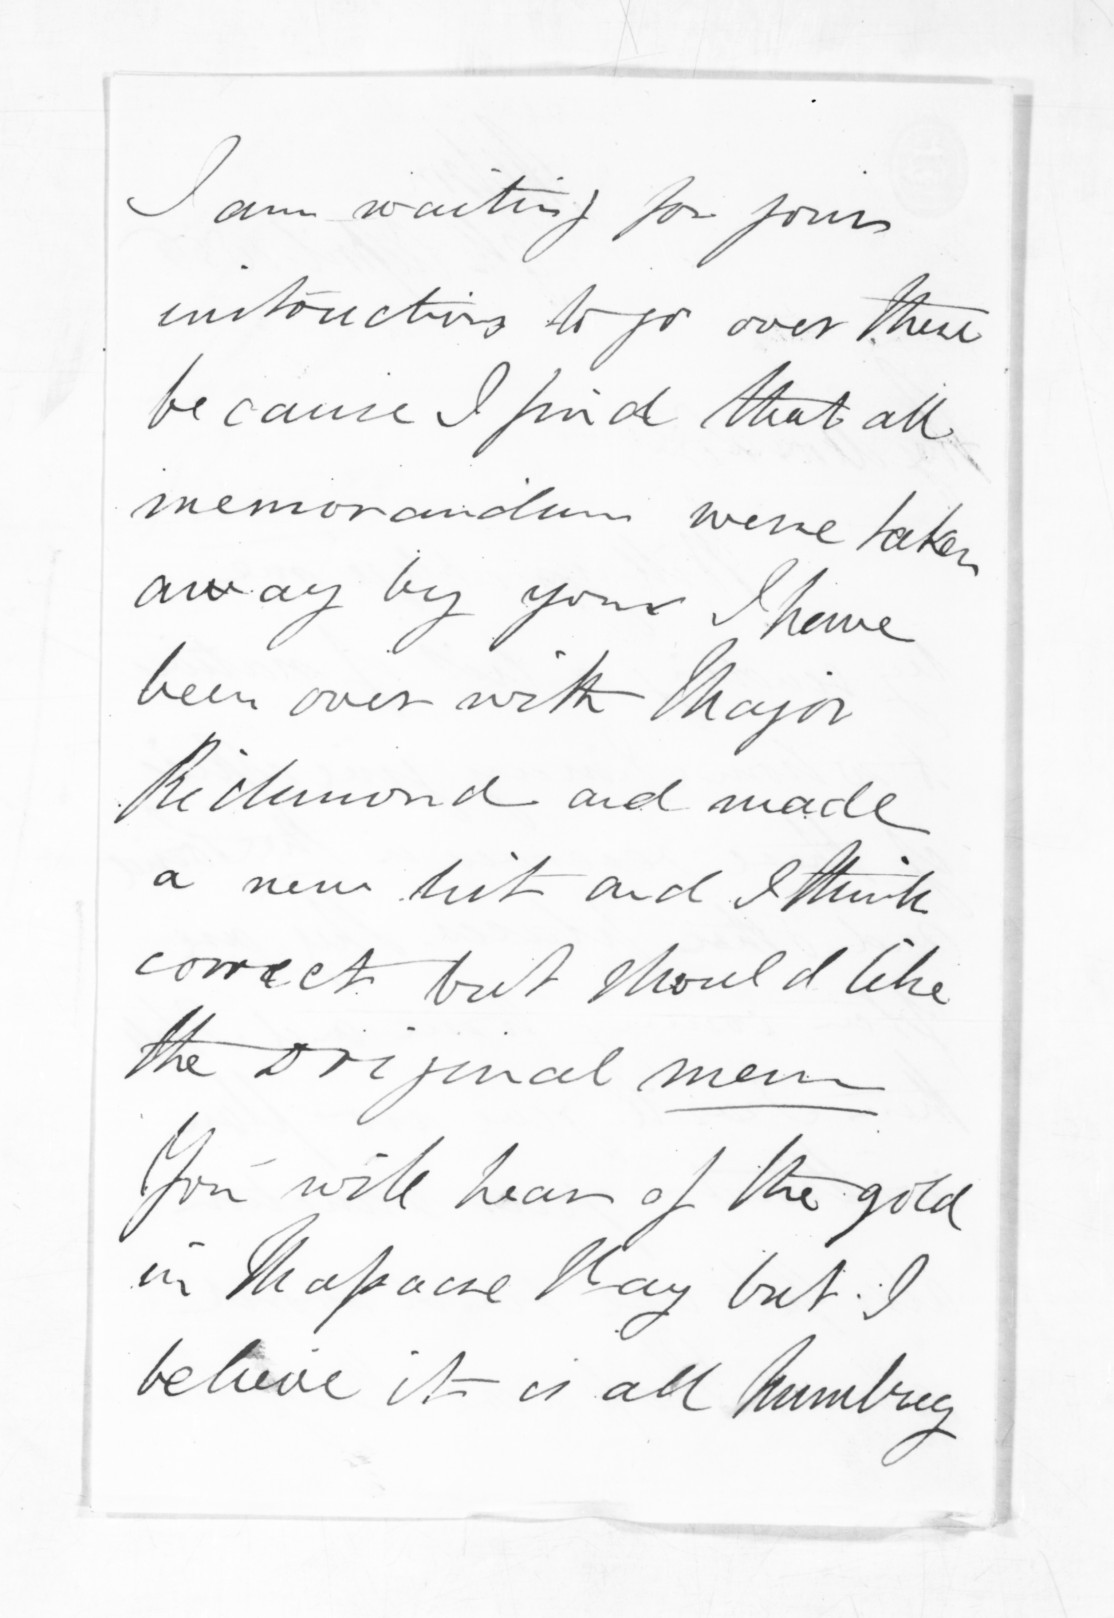 I am waiting for yours
instructions to go over these
because I find that all
memorandum were taken
away by your I have
been over with Major
Richmond and made
a new list and I think
correct but should like
the original mem
You will hear of the gold
in Bay but I
believe it is all humbug